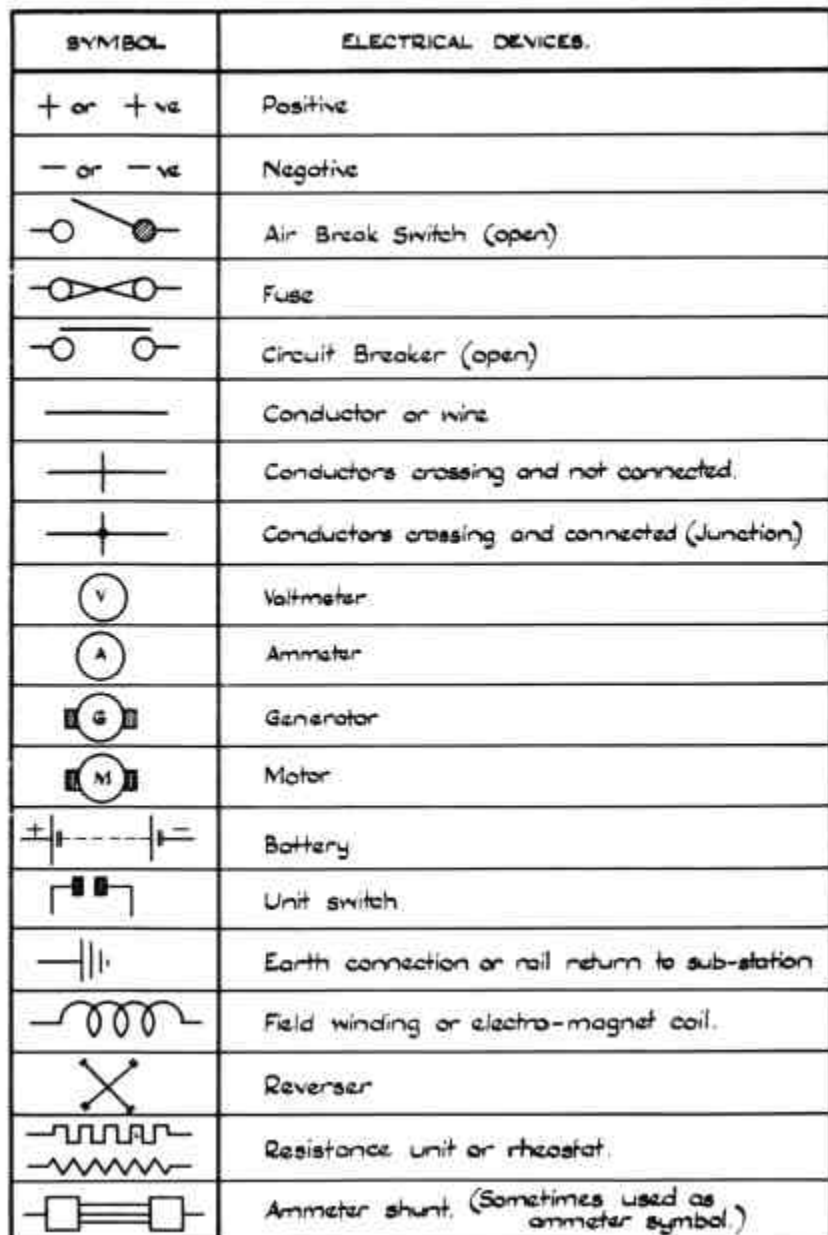 SYMBOL ELECTRICAL DEVICES.
+ or + ve Positive
− or − ve Negative
Air Break Switch (open)
Fuse
Circuit Breaker (open)
Conductor or wire
Conductors crossing and not connected.
Conductors crossing and connected (Junction.)
V Voltmeter
A Ammeter
G Generator
M Motor
+ − Battery
Unit switch
Earth connection or rail return to sub-station
Field winding or electro-magnet coil.
Reverser
Resistance unit or rheostat.
Ammeter shunt. (Sometimes used as
ammeter symbol.)